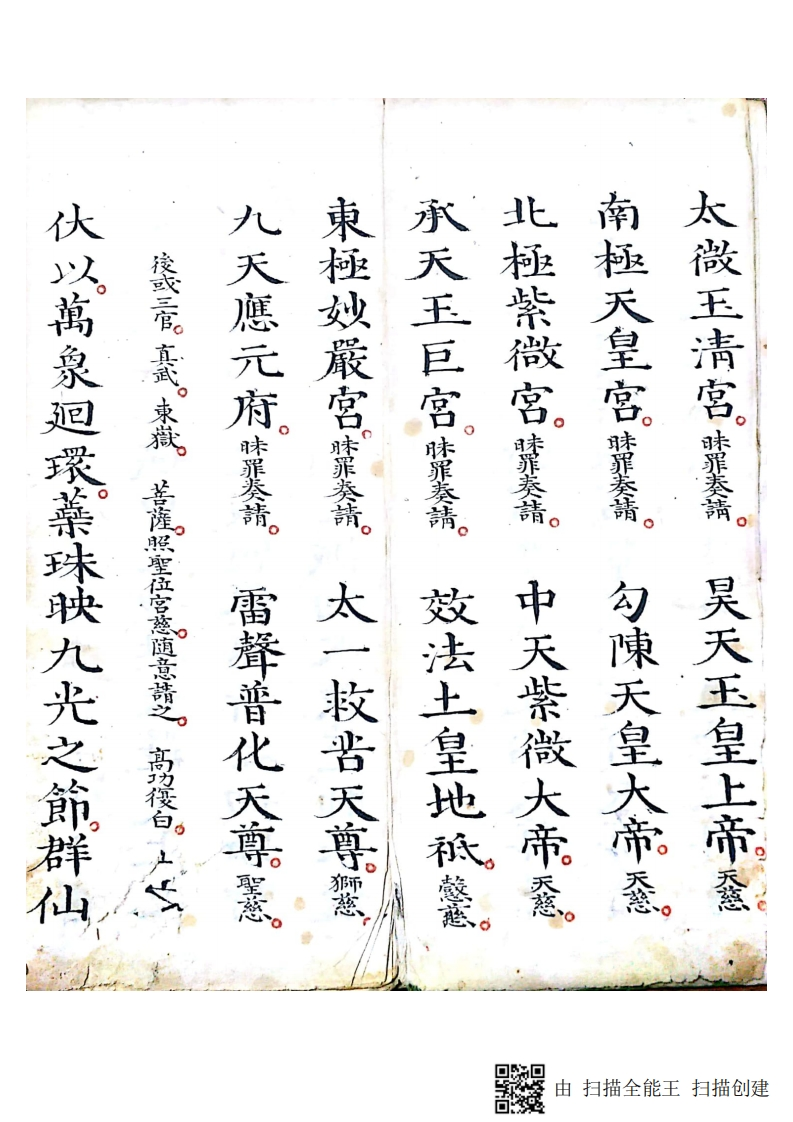 太微玉清宮。昧罪奏請。 昊天玉皇上帝。天慈。
南極天皇宮。昧罪奏請。 勾陳天皇大帝。天慈。
北極紫微宮。昧罪奏請。 中天紫微大帝。天慈。
承天玉巨宮。昧罪奏請。 效法土皇地祇。慈。
東極妙嚴宮。昧罪奏請。 太一救苦天尊。獅慈。
九天應元府。昧罪奏請。 雷聲普化天尊。聖慈。
後或三官。真武。東嶽。 菩薩。照聖位宮慈。随意請之。 高功復白。
伏以。萬彙廻環。蘂珠映九光之節。群仙
由 扫描全能王 扫描创建